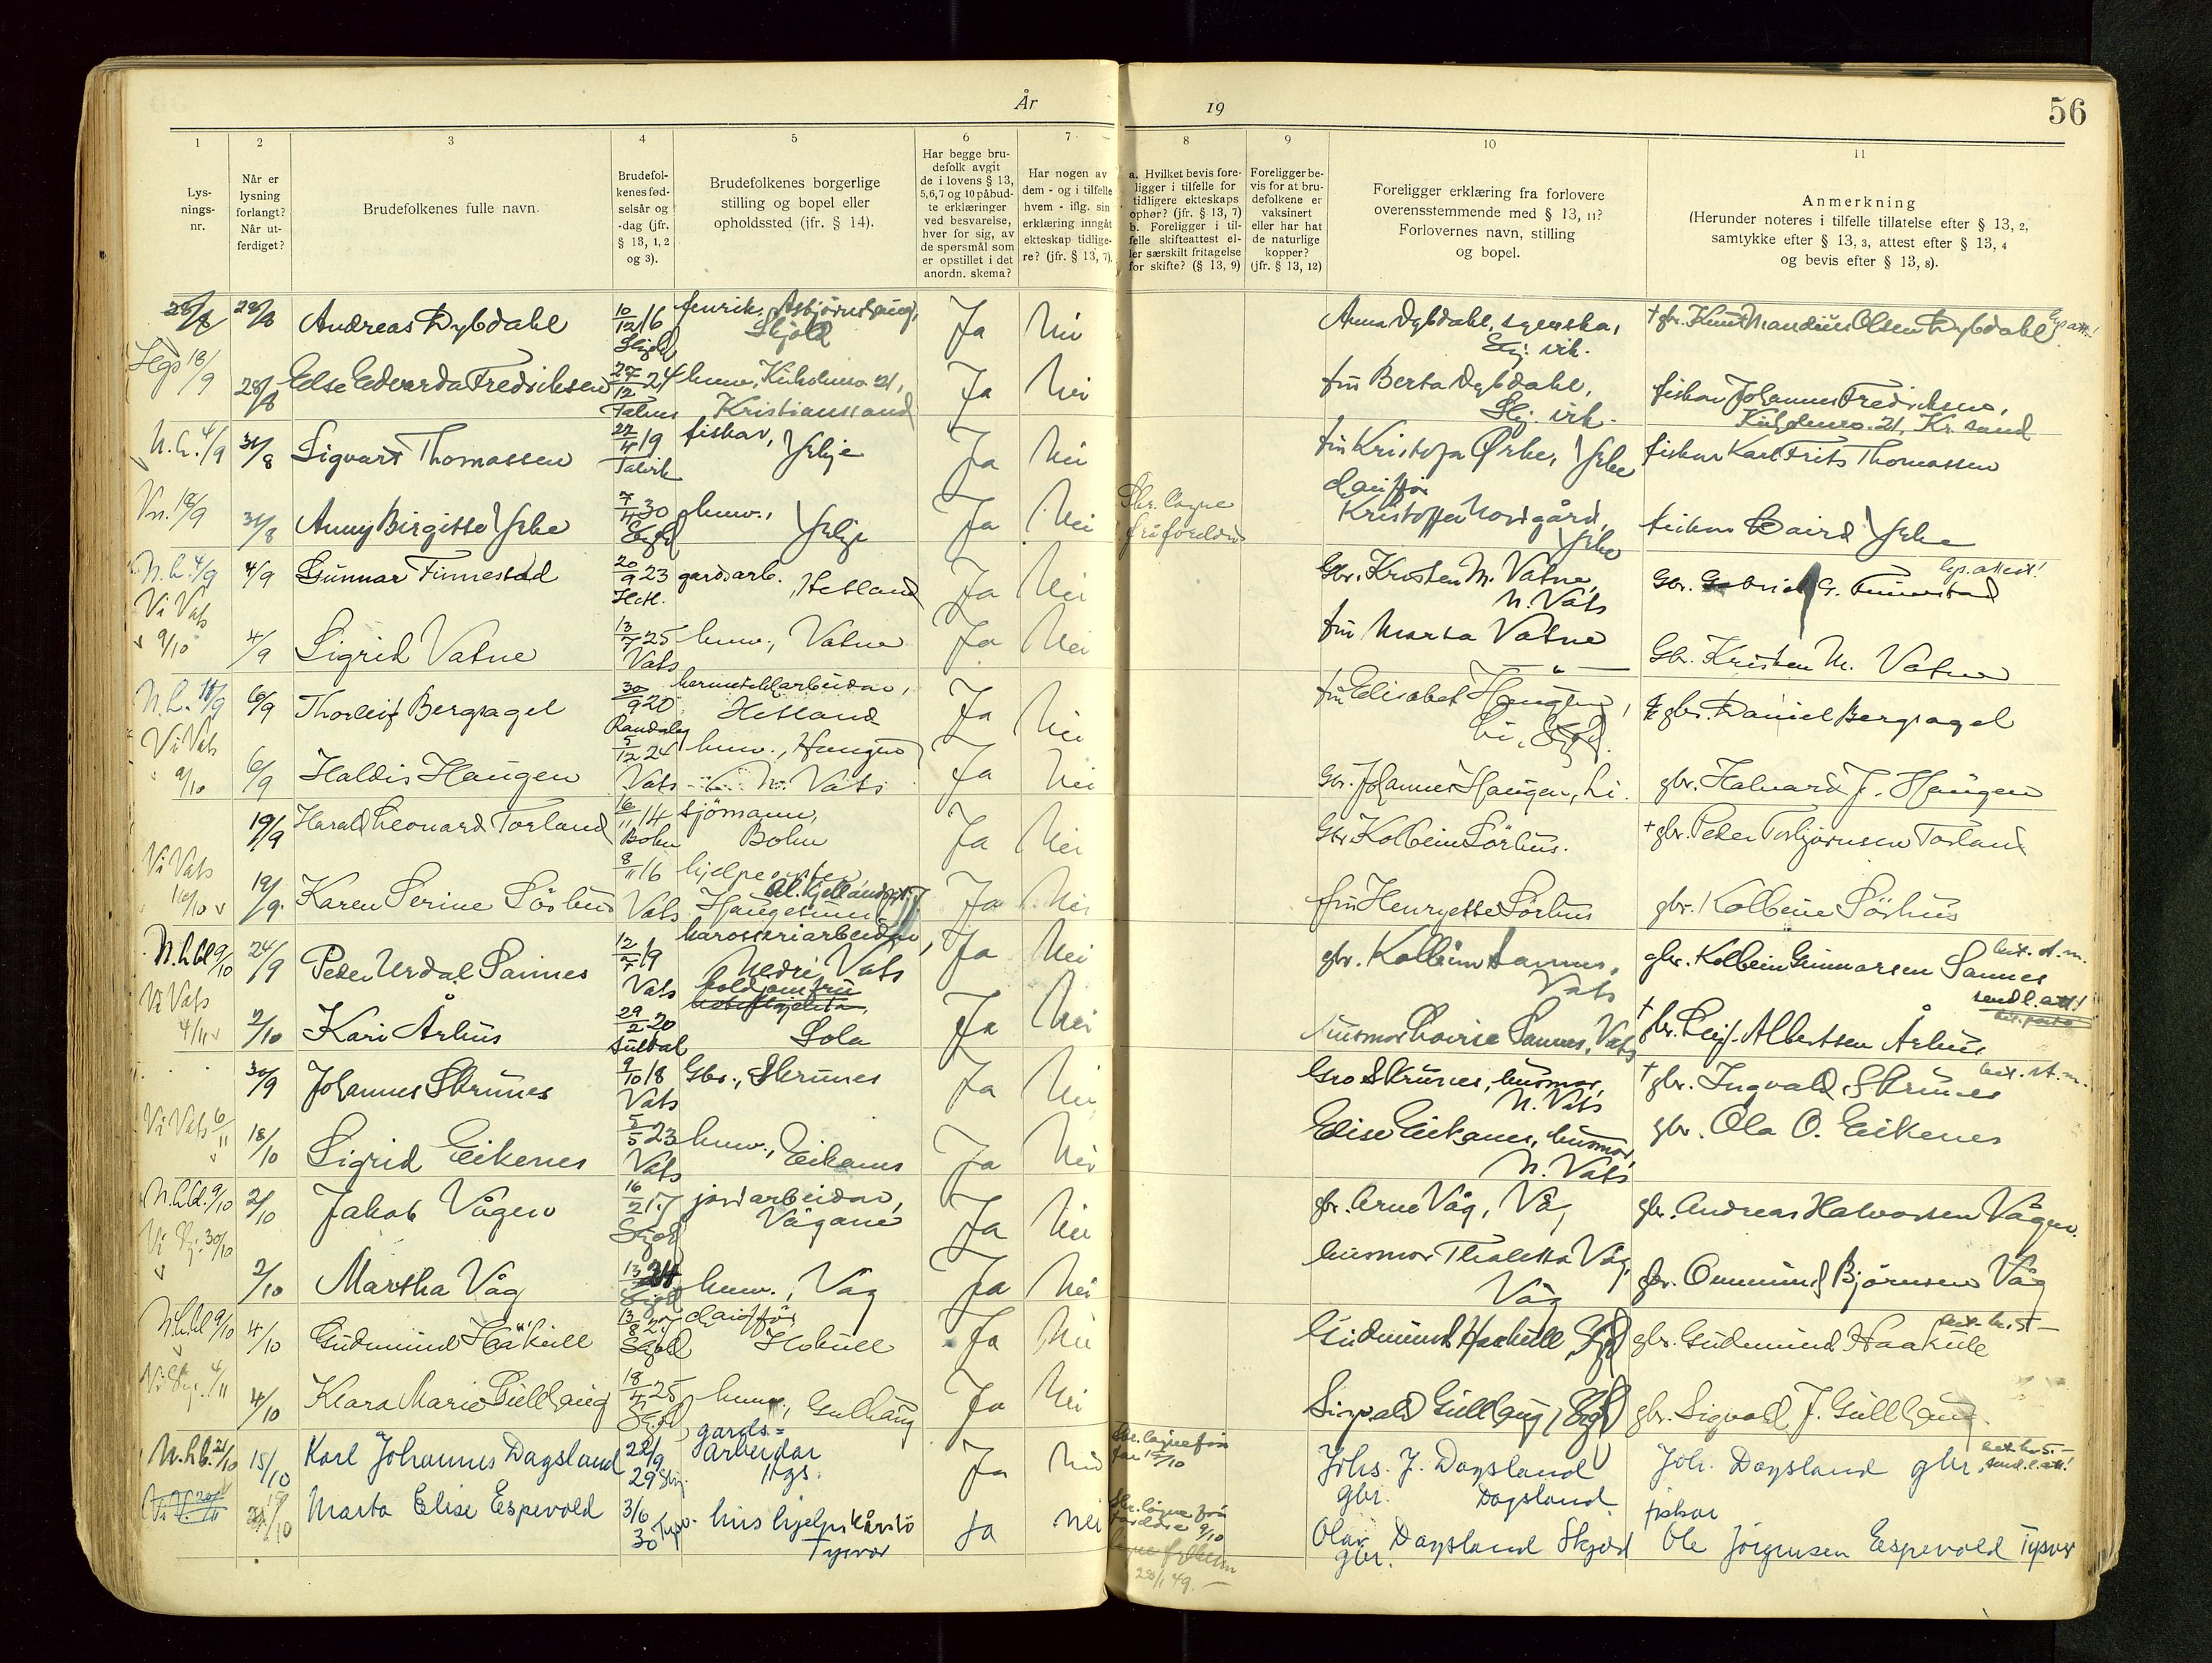 År
19
56
1
2
3
4
5
6
7
8
9
10
11
Lys-
nings-
nr.
Når er
lysning
forlangt?
Når ut-
ferdiget?
Brudefolkenes fulle navn.
Brudefol-
kenes fød-
selsår og
-dag (jfr.
§ 13, 1, 2
og 3).
Brudefolkenes borgerlige
stilling og bopel eller
opholdssted (jfr. § 14).
Har begge bru-
defolk avgit
de i lovens § 13,
5,6,7 og 10 påbud-
te erklæringer
ved besvarelse,
hver for sig, av
de spørsmål som
er opstillet i det
anordn. skema?
Har nogen av
dem - og i tilfelle
hvem - iflg. sin
erklæring inngåt
ekteskap tidlige-
re? (jfr. § 13, 7).
a. Hvilket bevis fore-
ligger i tilfelle for
tidligere ekteskaps
ophør? (jfr. § 13, 7)
b. Foreligger i til-
felle skifteattest el-
ler særskilt fritagelse
for skifte? (§ 13, 9)
Foreligger be-
vis for at bru-
defolkene er
vaksinert
eller har hat
de naturlige
kopper?
(jfr. § 13, 12)
Foreligger erklæring fra forlovere
overensstemmende med § 13, 11?
Forlovernes navn, stilling
og bopel.
Anmerkning
(Herunder noteres i tilfelle tillatelse efter § 13, 2,
samtykke efter § 13, 3, attest efter § 13, 4
og bevis efter § 13, 8).
28/8 28/8 Andreas Dybdahl 10/12 16 Skjold Ja Nei Anna Dybdahl, Skj. vik. † gbr. Knut Mandius Olsen Dybdahl
Hgs 18/9 28/8 Else Edvarda Fredriksen 27/12 24 husv., Kirkhusv. 21, Kristianssand Ja Nei fru Berta Dybdahl, Skj. vik. fiskar Johannes Fredriksen, 21, Kr. sand
N.h. 4/9 31/8 Sigvart Thomassen 27/4 19 Talvik fiskar, Yrkje Ja Nei fru Kristofa Yrke, Yrke fiskar Karl Frits Thomassen
18/9 31/8 Anny Birgitte Yrke 7/11 30 husv., Yrkje Ja Nei Skr. løyve frå foreldre Kristoffer Nordgård, Yrke fiskar Yrke
N.h. 4/9 4/9 Gunnar Finnestad 20/9 23 Hetl. gardsarb., Hetland Ja Nei Gbr. Kristen M. Vatne, N. Vats Gbr. Gabriel G. Finnestad
Vi Vats 9/10 4/9 Sigrid Vatne 13/7 25 Vats husv., Vatne Ja Nei fru Marta Vatne Gbr. Kristen M. Vatne
N.h. 6/9 Thorleif Bergsagel 30/9 20 Randaberg hermetikkarbeidar, Hetland Ja Nei fru Elisabet Haugen, Li, Skjold gbr. Daniel Bergsagel
Vi Vats 9/10 6/9 Haldis Haugen 5/12 24 Vats husv., Haugen N. Vats Ja Nei Gbr. Johannes Haugen, Li. gbr. Halvard J. Haugen
19/9 Harald Leonard Torland 16/11 14 Bokn sjömann, Bokn Ja Nei Gbr Kolbein Sörhus. † gbr. Peder Torbjørnsen Torland
Vi Vats 16/10 19/9. Karen Serine Sörhus 8/11 16 Vats Haugesund Ja Nei fru Henryette Sörhus gbr. Kolbein Sörhus
N.h.bl 9/10 24/9 Peder Urdal Sannes 12/7 19 Vats karosseriarbeidar, Nedre Vats Ja Nei gbr. Kolbein Sannes, Vats gbr. Kolbein Gunnarsen Sannes
Vi Vats 4/11 2/10 Kari Århus 29/2 20 Suldal koldjomfru Sola Ja Nei husmor Lovise Sannes, Vats † gbr. Leif Albertsen Århus
30/9 Johannes Skrunes 9/10 18 Vats Gbr., Skrunes Ja Nei Gro Skrunes, husmor, N. Vats † gbr. Ingvald Skrunes
Vi Vats 6/11 18/10 Sigrid Eikenes 5/5 23 Vats husv., Eikanes Ja Nei Elise Eikanes, husmor, N. Vats gbr. Ola O. Eikenes
N.h.bl. 9/10 2/10 Jakob Vågen 16/2 17 Skjold jordarbeidar, Vågane Ja Nei gbr. Arne Våg, Våg gbr. Andreas Halvorsen Vågen.
Vi Skj. 30/10 2/10 Martha Våg Skjold husv., Våg Ja Nei husmor Thaletta Våg, Våg gbr. Ommund Bjørnsen Våg
N.h.bl 9/10 4/10 Gudmund Haakull 13/8 27 Skjold Hokull Ja Nei Gudmund Haakull, Skjold gbr. Gudmund Haakull
Vi Skj. 4/11 4/10 Klara Marie Gullhaug 18/4 25 Skjold husv., Gullhaug Ja Nei Sigvald Gullhaug, Skjold gbr. Sigvald J. Gullhaug
N.h.b. 21/10 15/10 Karl Johannes Dagsland 22/9 29 Skj. gards-arbeidar Hgs. Ja Nei Skr. løyve frå far 15/10 Johs. J. Dagsland gbr. Dagsland Joh. Dagsland gbr.
Marta Elise Espevold 3/6 30 Tysv. hushjelp Kårstø Tysvær Ja Nei Skr. løyve frå foreldre 9/10 Olav Dagsland Skjold gbr. fiskar Ole Jörgensen Espevold Tysvær
28/1 49.